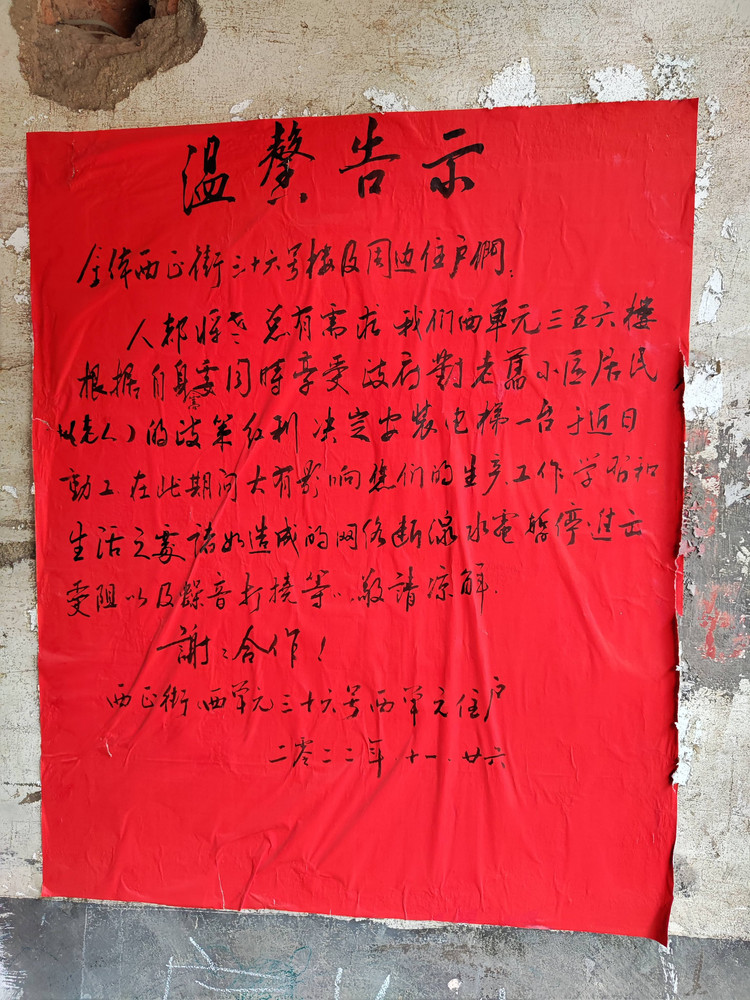 温馨告示
全体西正街三十六号楼及周边住户們:
人都将老总有需求 我们西单元三五六楼
根据自身要同時享受政府對老舊小区居民
(老人)的政策红利 决定安装电梯一台于近日
動工 在此期间大有影响您们的生产工作学習和
生活之處 諸如造成的网络断線水電暂停進出
受阻以及噪音打搅等 敬請凉解.
謝谢合作!
西正街西单元三十六号西单元住户
二零二二年.十一.廿六